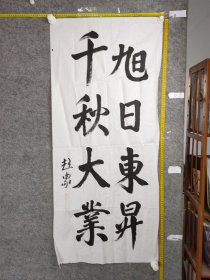 旭日東昇
千秋大業